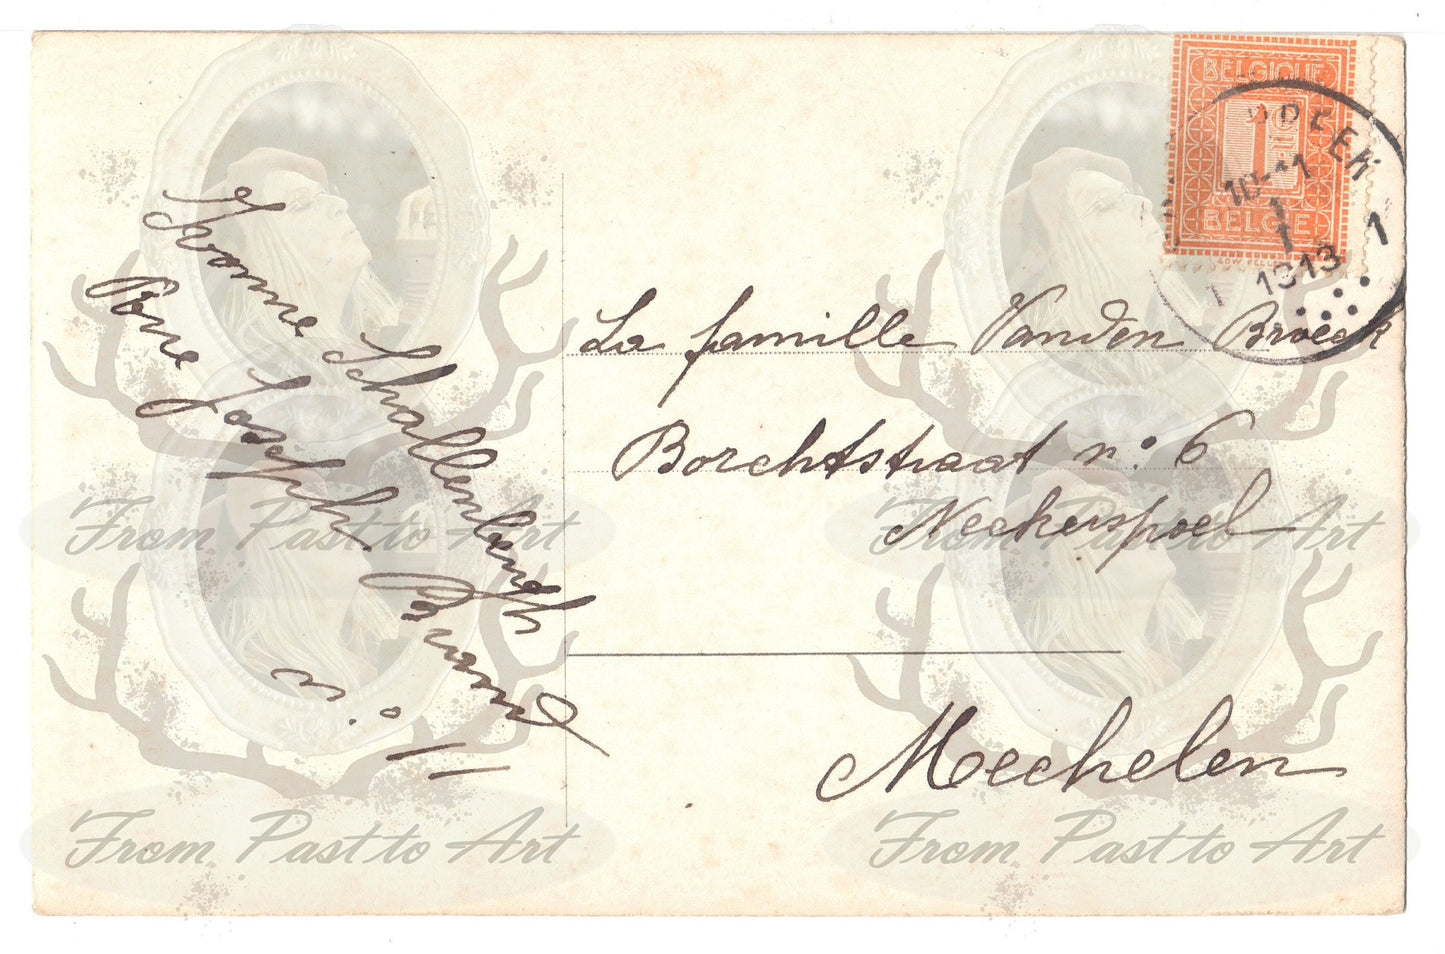 Yvonne Schallenbergh
Rue Joseph
n. 11
BELGIQUE
1 C
BELGIE
10-11
1
1
1913
1
La famille Vanden Broeck
Borchtstraat n: 6
Neckerspoel
Mechelen
From Past to Art
From Past to Art
From Past to Art
From Past to Art